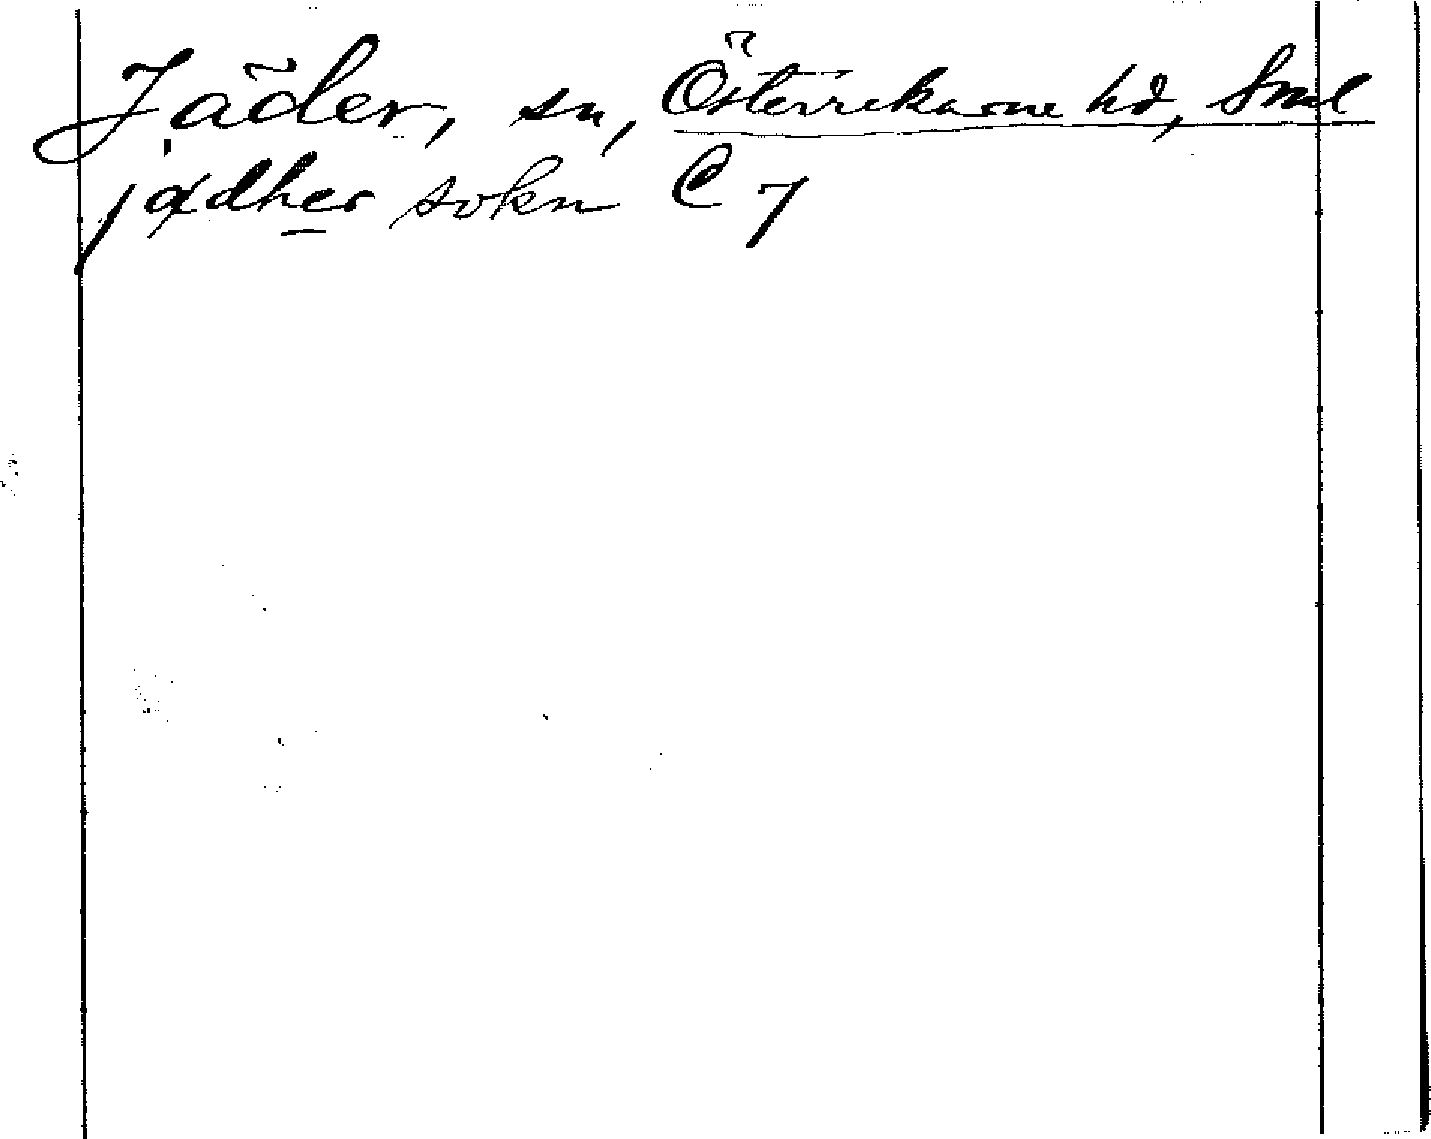 Jäder, sn, Österrekarne hd, Sml
jædher sokn C 7